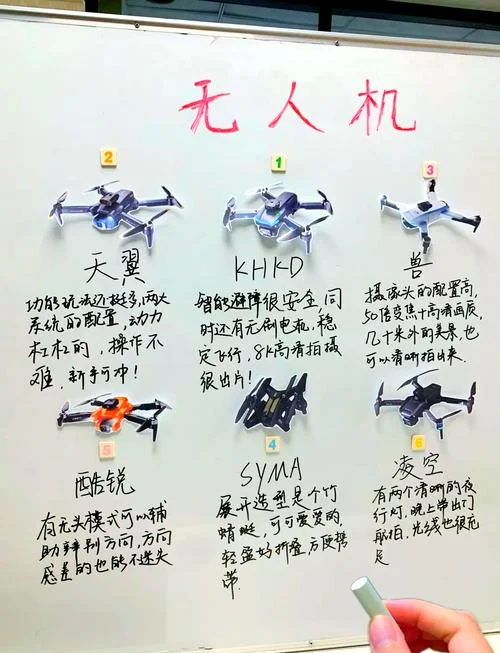 无人机
2
1
3
天翼
功能玩法还挺多,两大
系统的配置,动力
杠杠的,操作不
难,新手可冲!
KHKD
智能避障很安全,同
时还有无刷电机,稳
定飞行,8K高清拍摄
很出片!
兽
摄像头的配置高,
50倍变焦+高清画质,
几十米外的美景,也
可以清晰拍出来.
5
4
6
酷锐
有无头模式可以辅
助辨别方向,方向
感差的也能不迷失
SYMA
展开造型是个竹
蜻蜓,可可爱爱的,
轻盈好折叠,方便携
带.
凌空
有两个清晰的夜
行灯,晚上带出门
航拍,光线也很充
足